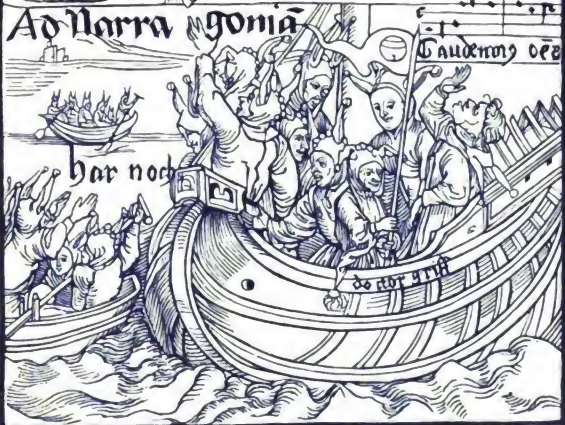 Ad Narra goniā
Gaudeamus oēs
har noch
doctor griff